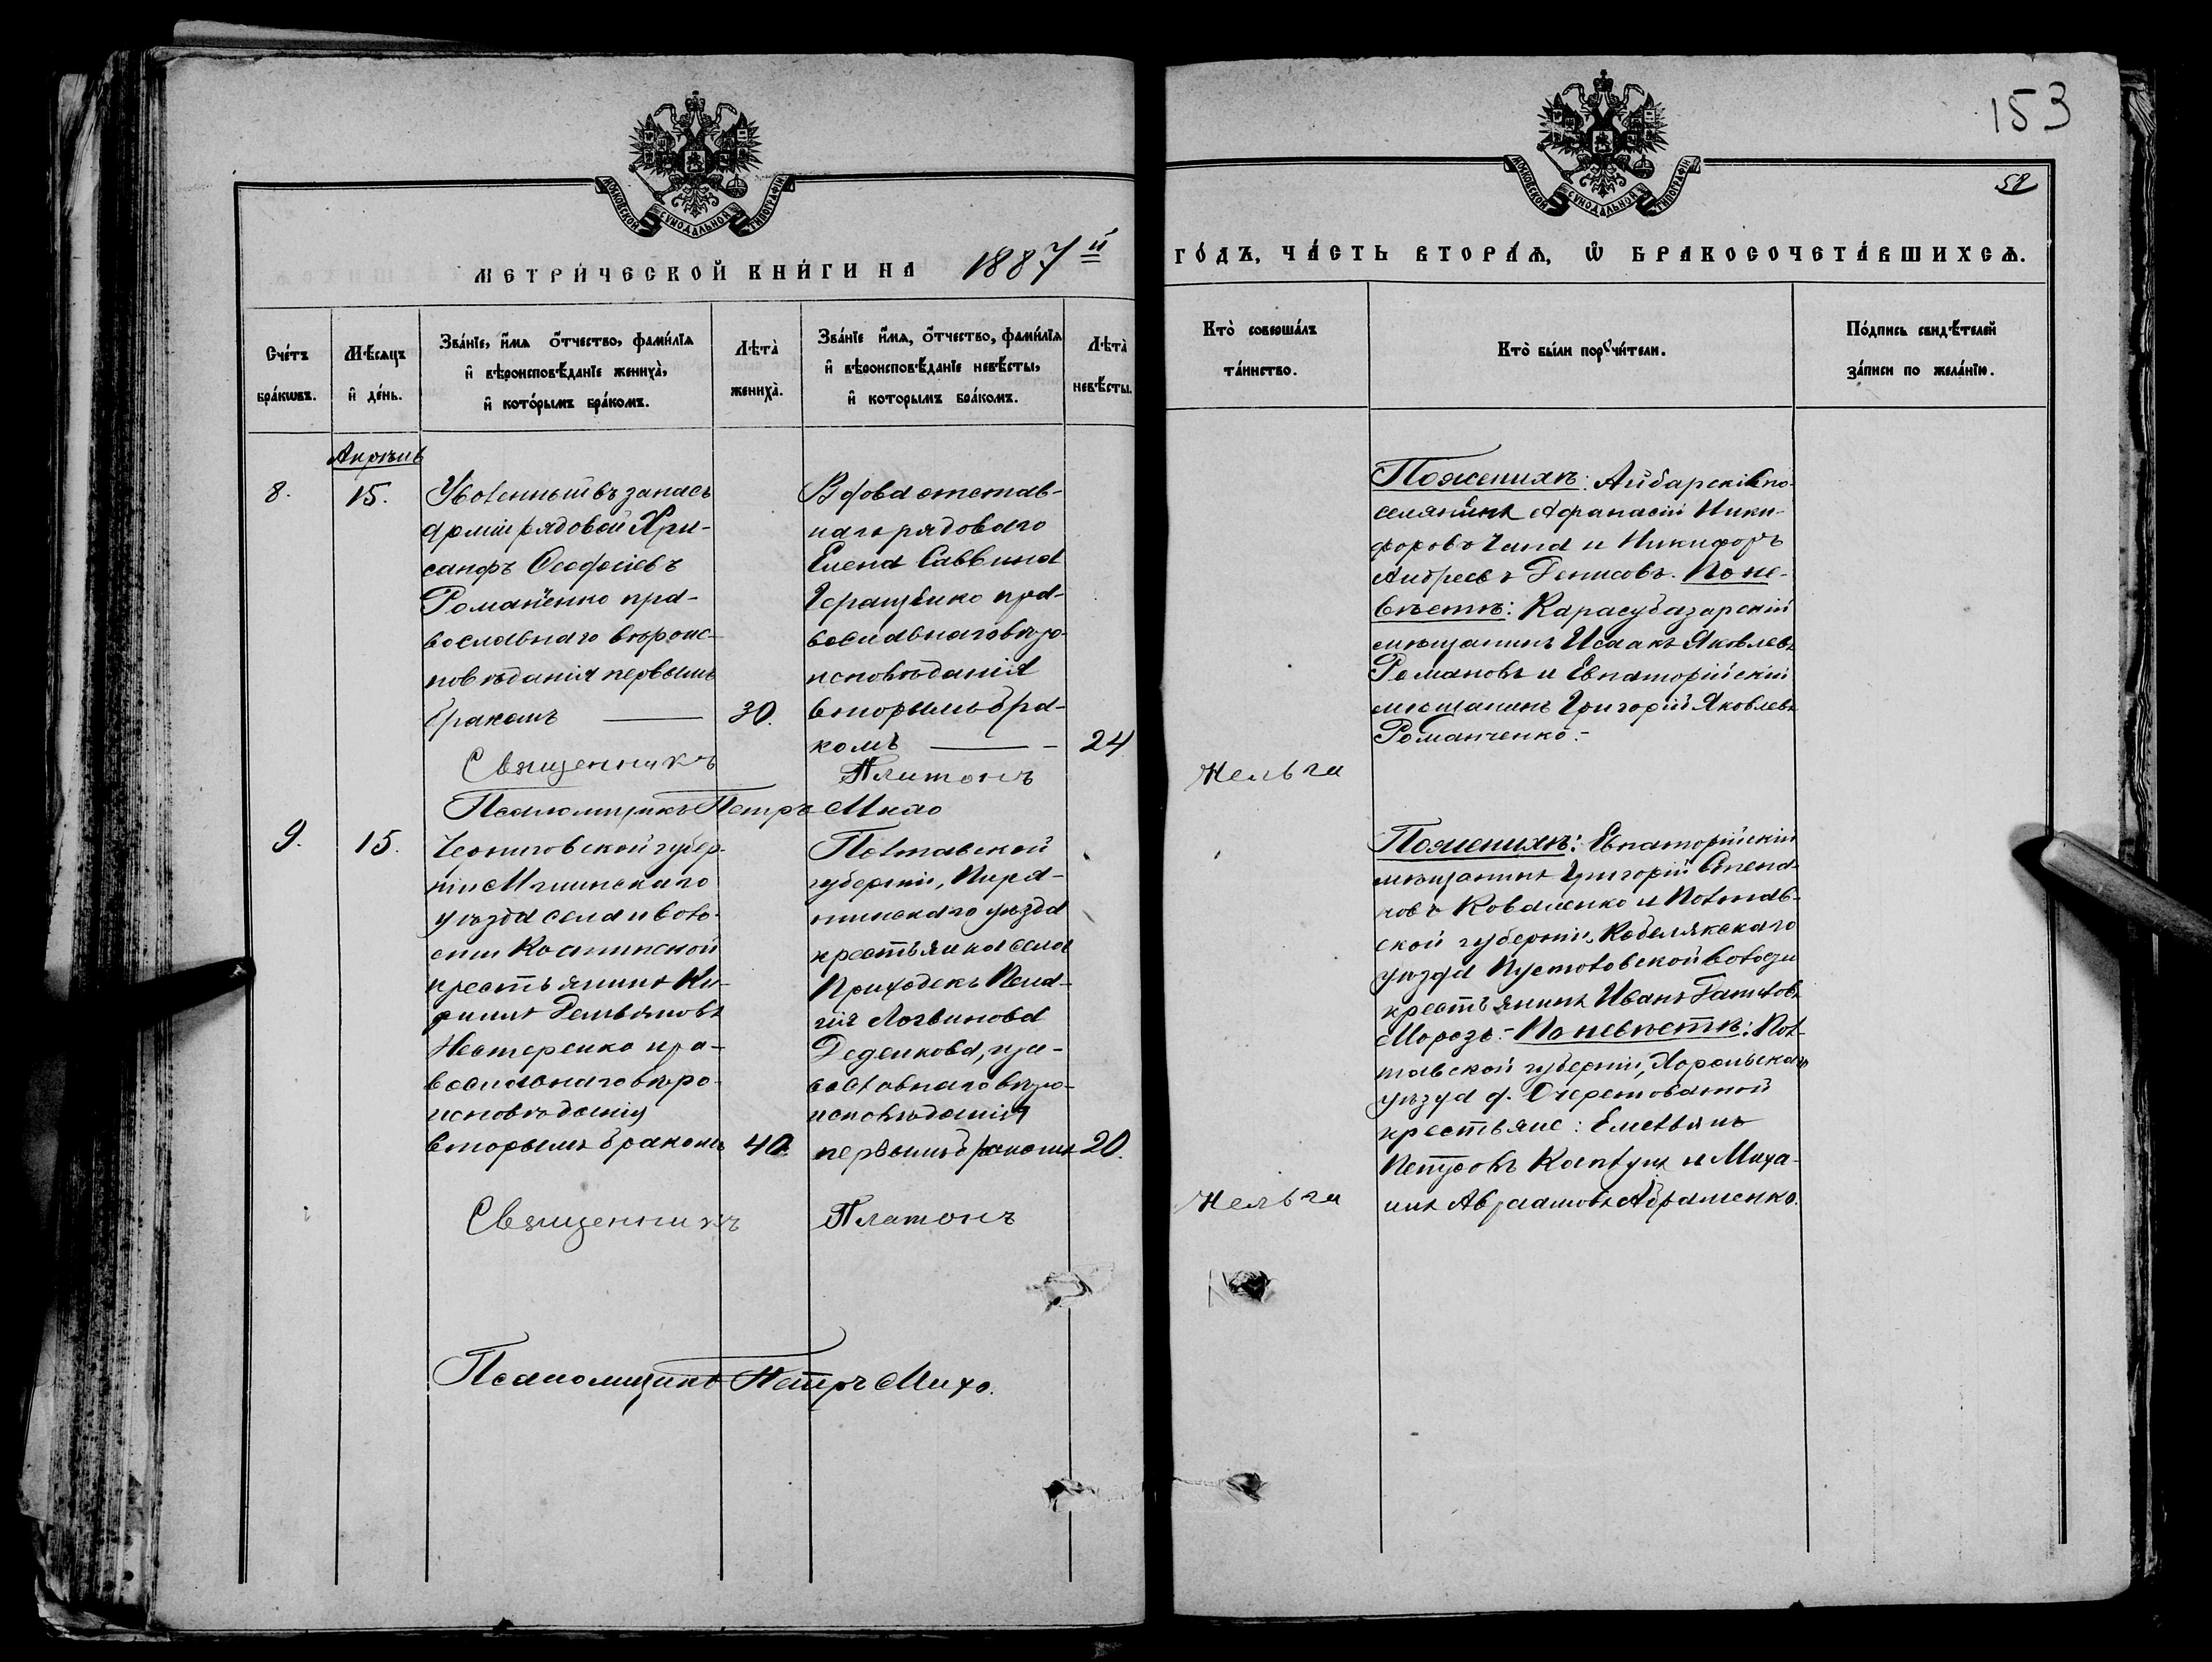 153
МОСКОВСКОЙ СѴНОДАЛЬНОЙ ТИПОГРАФІИ
МОСКОВСКОЙ СѴНОДАЛЬНОЙ ТИПОГРАФІИ
58
МЕТРИ́ЧЕСКОЙ КНИ́ГИ НА 1887й
ГО́ДЪ, ЧА́СТЬ ВТОРА́Ѧ, Ѡ҆ БРАКОСОЧЕТА́ВШИХСѦ.
Сче́тъ
бра́кѡвъ.
Мѣ́сѧцъ
и҆ де́нь.
Зва́нїе, и҆́мѧ ѻ҆́тчество, фами́лїѧ
и҆ вѣроисповѣ́данїе жениха̀,
и҆ кото́рымъ бра́комъ.
Лѣта̀
жениха̀.
Зва́нїе и҆́мѧ, ѻ҆́тчество, фами́лїѧ
и҆ вѣроисповѣ́данїе невѣ́сты,
и҆ которымъ бра́комъ.
Лѣта̀
невѣ́сты.
Кто̀ соверша́лъ
та́инство.
Кто̀ бы́ли порꙋчи́тели.
По́дпись свидѣ́телей
за́писи по жела́нїю.
Апрѣль
8.
15.
Уволенный въ запасъ
арміи рядовой Хри-
санфъ Ѳеодосіевъ
Романченко пра-
вославнаго вѣроис-
повѣданія первымъ
бракомъ
30.
Вдова отстав-
наго рядоваго
Елена Саввина
Геращенко пра-
вославнаго вѣро-
исповѣданія
вторымъ бра-
комъ
24
Священникъ Платонъ
Псаломщикъ Петръ Михо
Нельга
По женихѣ: Айбарскій по-
селянинъ Афанасій Ники-
форовъ Чала и Никифоръ
Андреевъ Денисовъ. По не-
вѣстѣ: Карасубазарскій
мѣщанинъ Исаакъ Яковлевъ
Романовъ и Евпаторійскій
мѣщанинъ Григорій Яковлевъ
Романченко.-
9.
15.
Черниговской губер-
ніи Мглинскаго
уѣзда села и воло-
сти
крестьянинъ Ки-
риллъ Демьяновъ
Нестеренко пра-
вославнаго вѣро-
исповѣданія
вторымъ бракомъ
40.
Полтавской
губерніи, Пиря-
тинскаго уѣзда
крестьянка села
Приходекъ Пела-
гія Логвинова
Деденкова, пра-
вославнаго вѣро-
исповѣданія
первымъ бракомъ
20.
Священникъ Платонъ
Нельга
Псаломщикъ Петръ Михо.
По женихѣ: Евпаторійскій
мѣщанинъ Григорій Степа-
новъ Коваленко и Полтав-
ской губерніи, Кобелякскаго
уѣзда Пустоловской волости
крестьянинъ Иванъ Даниловъ
Морозъ.- По невѣстѣ: Пол-
тавской губерніи, Хорольскаго
уѣзда д. Очеретоватой
крестьяне: Емельянъ
Петровъ и Миха-
илъ Авраамовъ Абраменко.